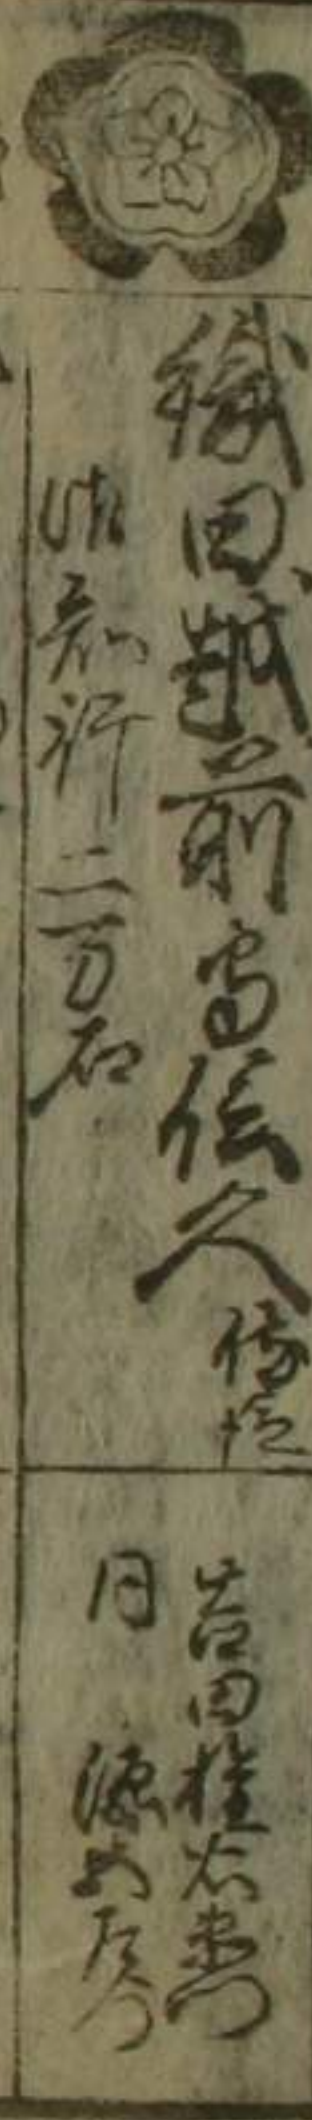 織田越前守信久
御知行二万石
吉田権右衛門
同 源五左衛門